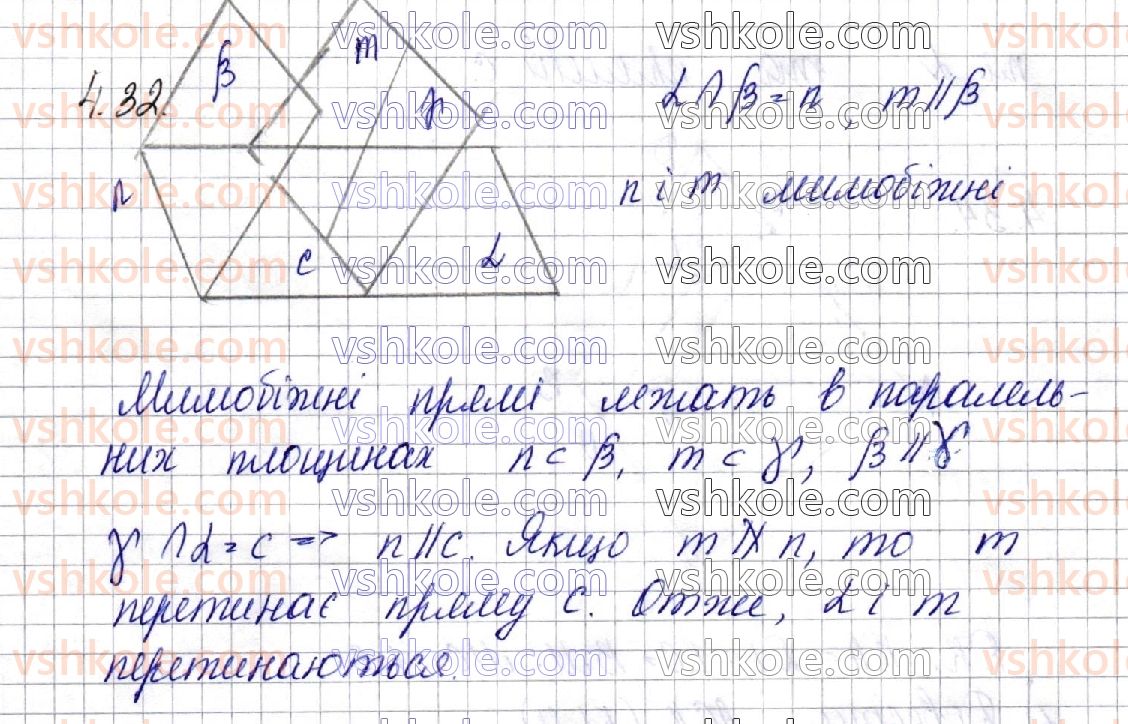 4.32.
β
m
γ
n
c
α
α∩β=n, m∥β
n і m мимобіжні
Мимобіжні прямі лежать в паралель-
них площинах n⊂β, m⊂γ, β∥γ
γ∩α=c => n∥c. Якщо m∦n, то m
перетинає пряму c. Отже, α і m
перетинаються.
vshkole.com